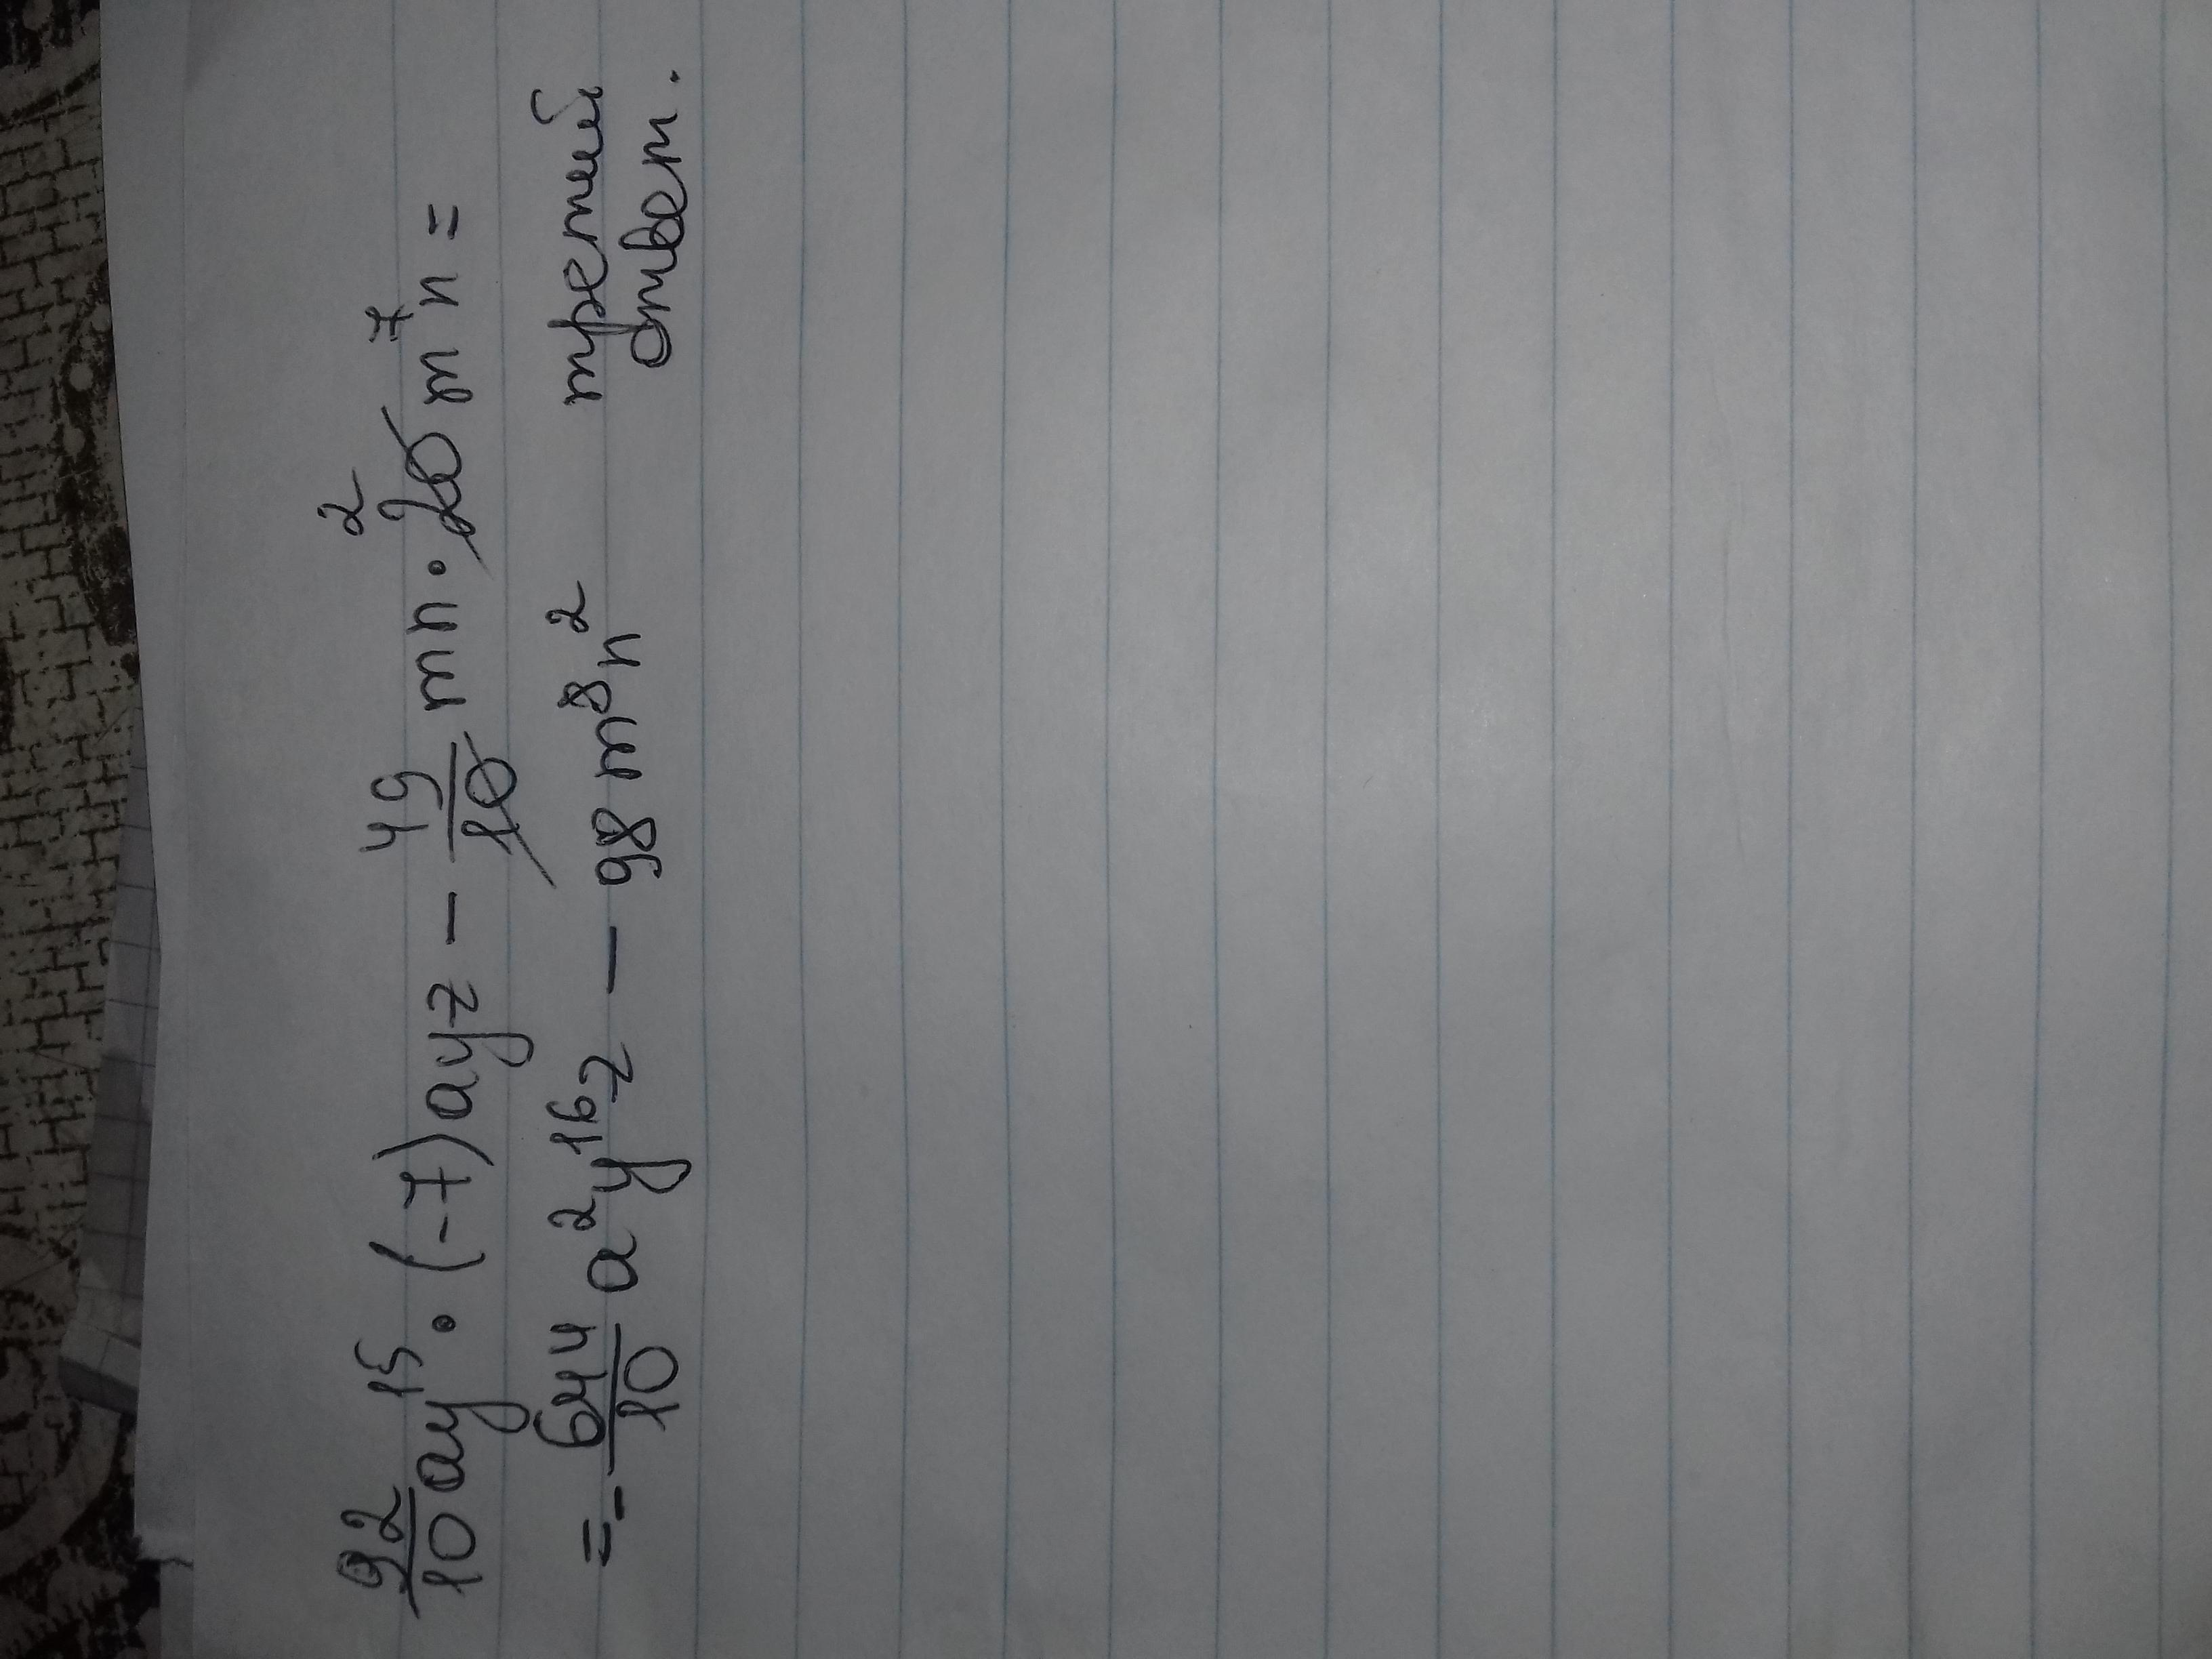 92/10 ay¹⁵ · (-7)ayz - 49/10 mn · 20² m⁷n =
= - 644/10 a²y¹⁶z - 98 m⁸n² третий
ответ.